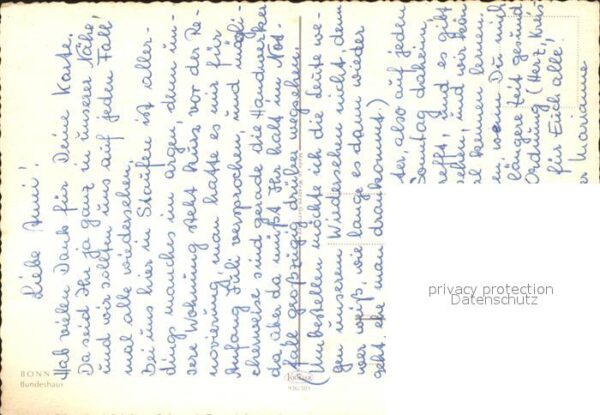 Liebe Anni!
Hab vielen Dank für Deine Karte.
Da seid Ihr ja ganz in unserer Nähe,
und wir sollten uns auf jeden Fall
mal alle wiedersehen.
Bei uns hier in Staufen ist aller-
dings manches im argen, denn un-
sere Wohnung steht kurz vor der Re-
novierung, man hatte es mir für
Anfang Juli versprochen, und mögli-
cherweise sind gerade die Handwerker
da aber da müßt Ihr halt im Not-
fall großzügig drüber wegsehen.
(Umbestellen möchte ich die Leute we-
gen unserem Wiedersehen nicht, denn
wer weiß wie lange es dann wieder
geht, ehe man drankommt.)
ter, also auf jeden
Sonntag daheim,
refft, und es gibt
sehen, und wir kön
el kennen lernen.
en, wenn Du mich
längere Zeit gesund
Ordnung (Herz,
für Euch alle!
Marianne
BONN
Bundeshaus
Krüger
privacy protection
Datenschutz